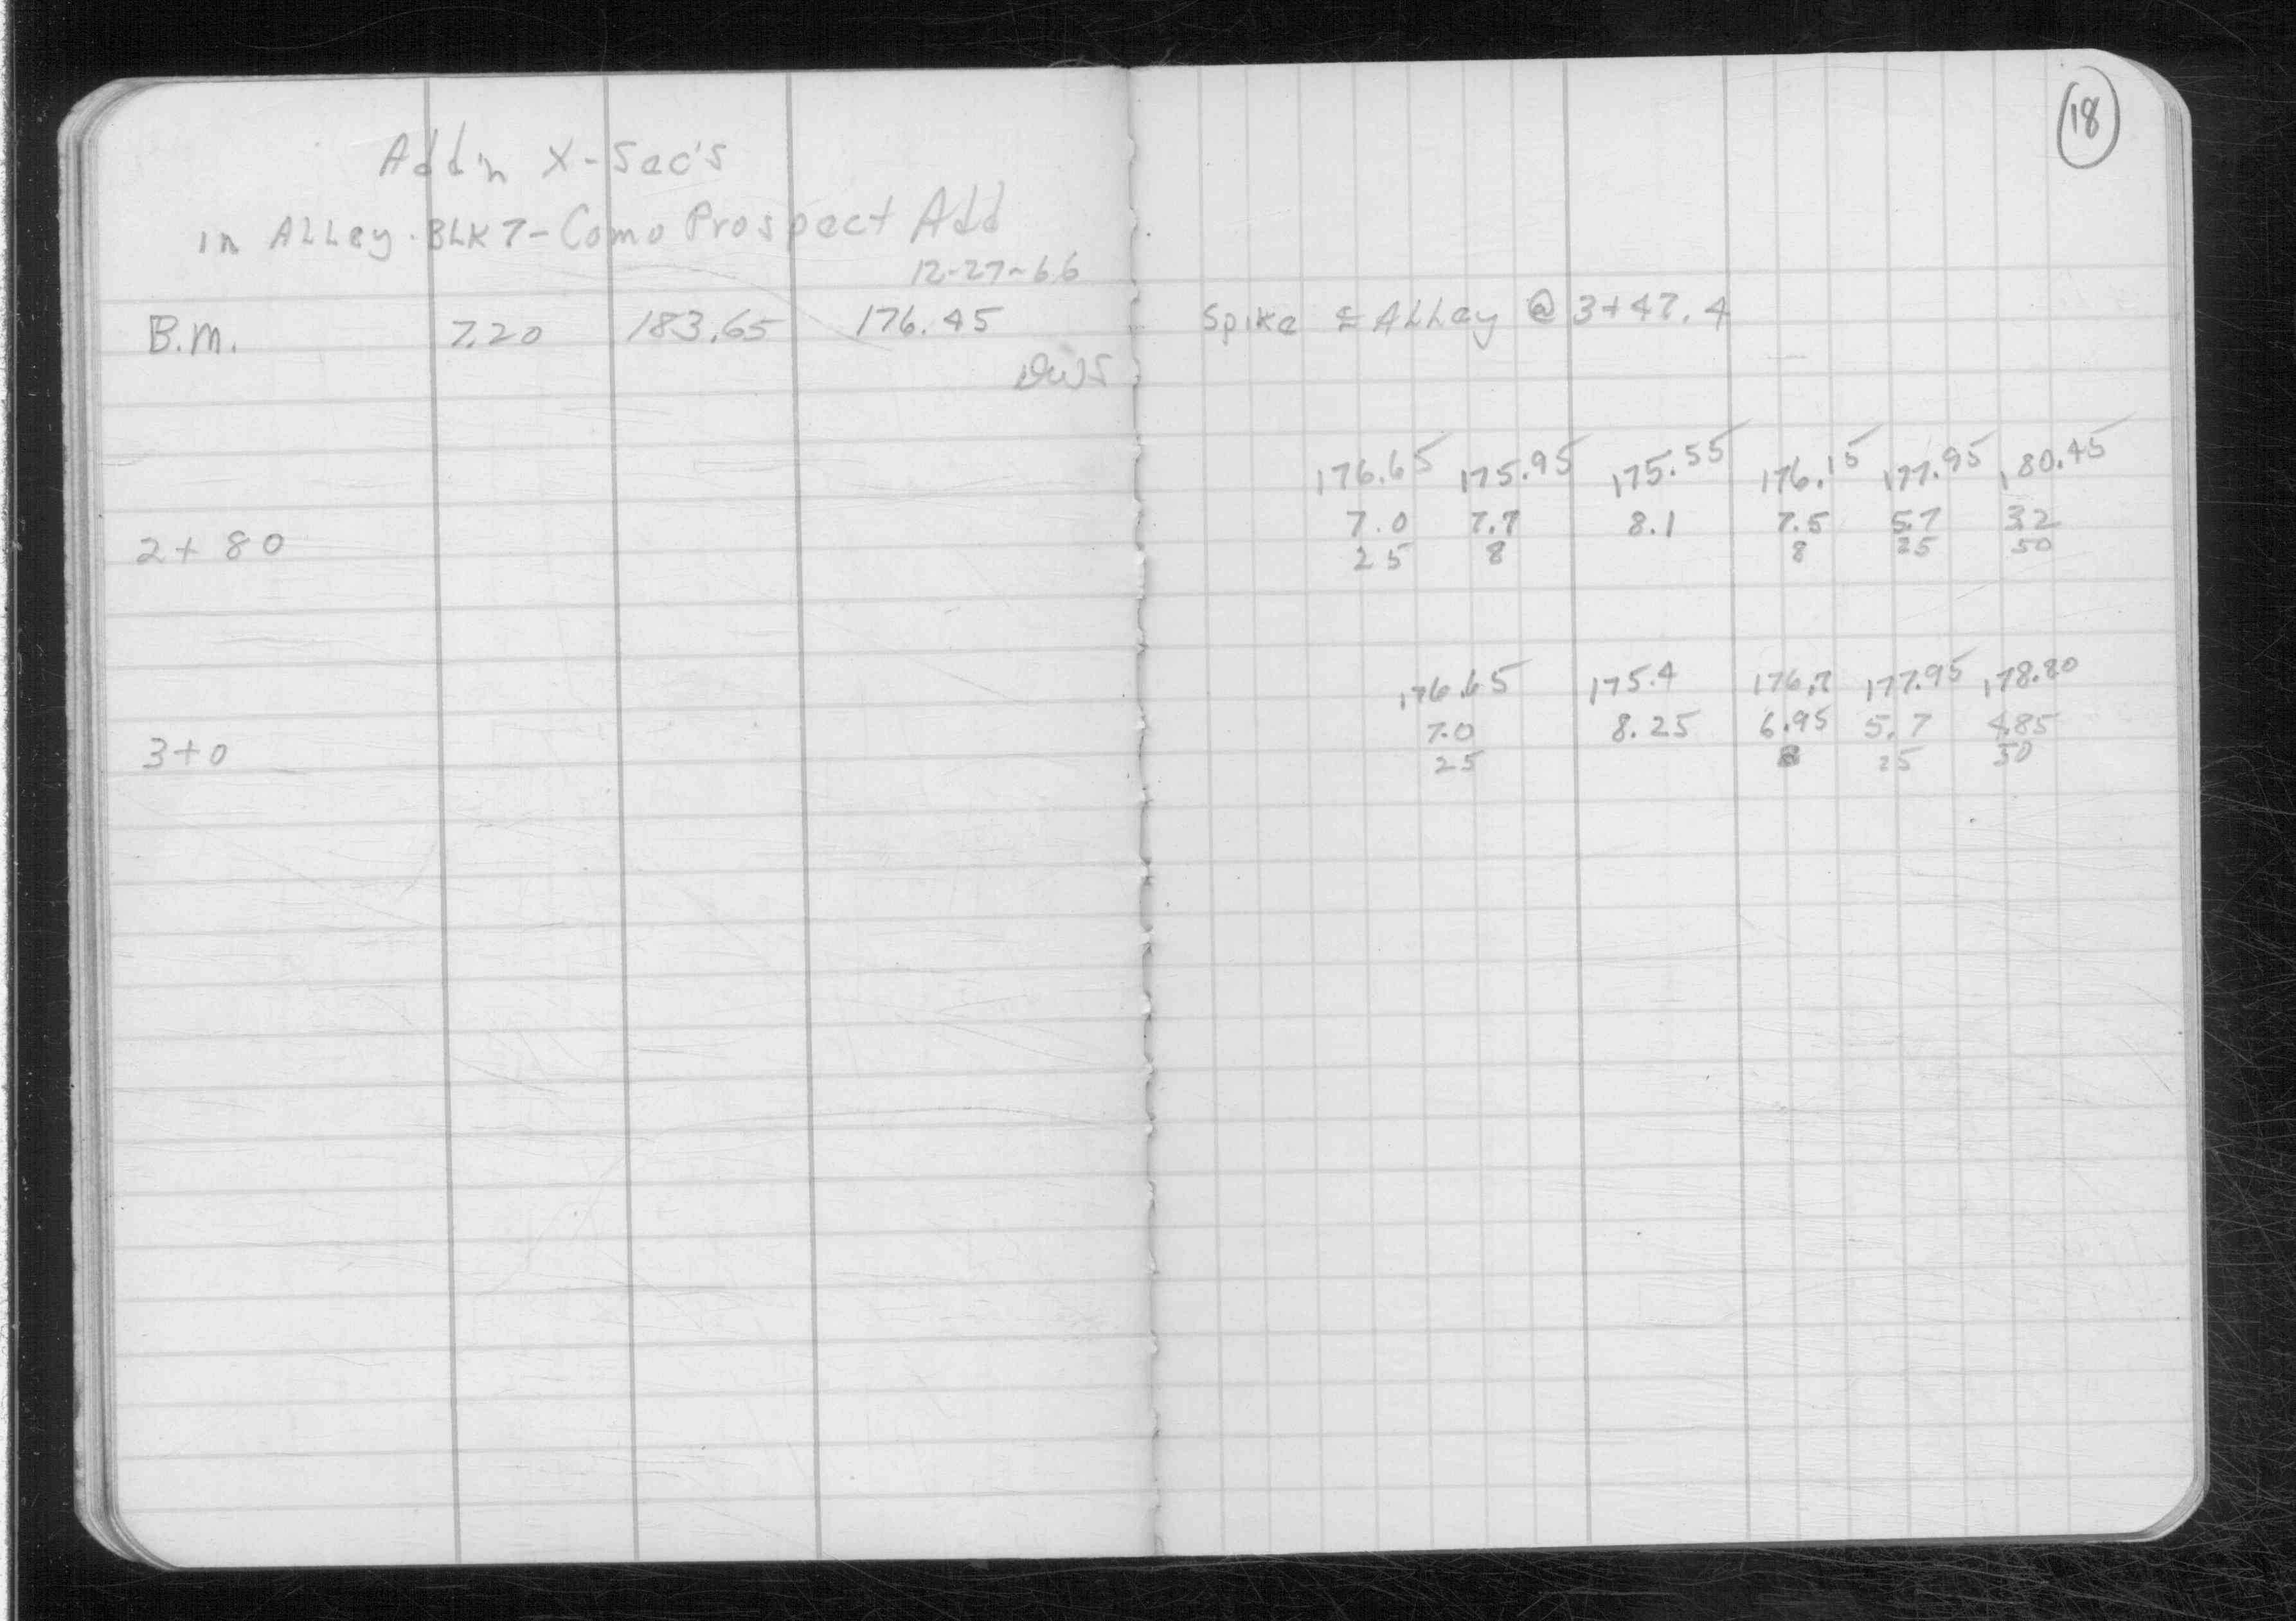 18
Add'n X-Sec's
in ALLey. BLK 7 - Como Prospect Add
12-27-66
B.M. 7.20 183.65 176.45 Spike ℄ ALLey @ 3+47.4
176.65 175.95 175.55 176.15 177.95 180.45
7.0 7.7 8.1 7.5 5.7 3.2
2+80 25 8 8 25 50
176.65 175.4 176.7 177.95 178.80
7.0 8.25 6.95 5.7 4.85
3+0 25 8 25 50